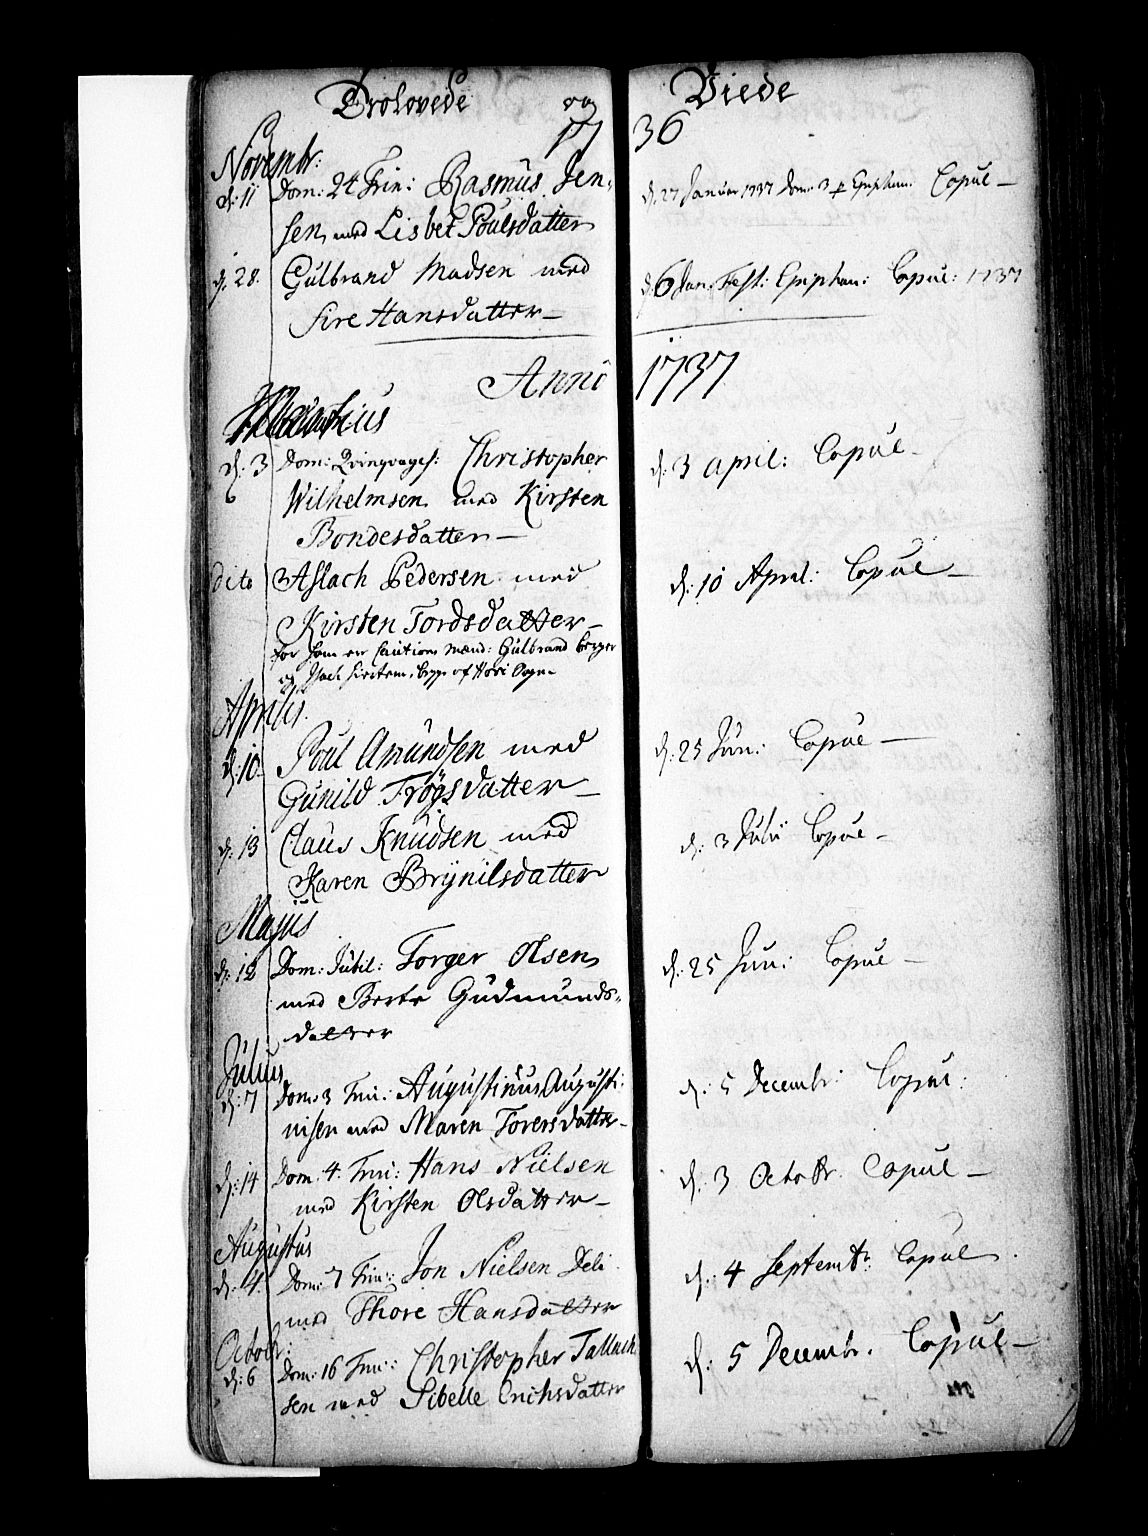 Trolovede og Viede
1736
Novembr:
d: 11 Dom: 24 Trin: Rasmus Jen- d. 27 Januar 1737 Dom: 3 p Epiphan: Copul
sen, med Lisbet Poulsdatter
d. 28. Gulbrand Madsen med d. 6 Jan. Fest: Epiphan: Copul: 1737
Sire Hansdatter
Anno 1737
Martius
d. 3 Dom: Qvinqvages: Christopher d. 3 april: Copul
Wilhelmsen med Kirsten
Bondesdatter
dito Aslach Pedersen med d: 10 April: Copul
Kirsten Tordsdatter
for ham er Cautions Mænd: Gulbrand
og af Hofs Sogn
Aprilis.
d: 10. Poul Amundsen med d: 25 Jun: Copul
Gunild Trøgsdatter
d: 13 Claus Knudsen med d: 3 Julii Copul
Karen Brÿnilsdatter
Majus
d: 12 Dom: Jubil: Torger Olsen d: 25 Jun: Copul
med Berte Gudmunds-
datter
Julius
d: 7 Dom: 3 Trin: Augustinus Augusti- d: 5 Decembr: Copul:
nisen med Maren Torersdatter
d: 14 Dom. 4. Trin: Hans Nielsen d: 3 Octobr. Copul
med Kirsten Olsdatter
Augustus
d: 4. Dom: 7 Trin: Jon Nielsen Deli d: 4 Septembr: Copul
med Thore Hansdatter
Octobr:
d: 6 Dom: 16 Trin: Christopher Tallach d: 5 Decembr. Copul
sen med Sibelle Erichsdatter